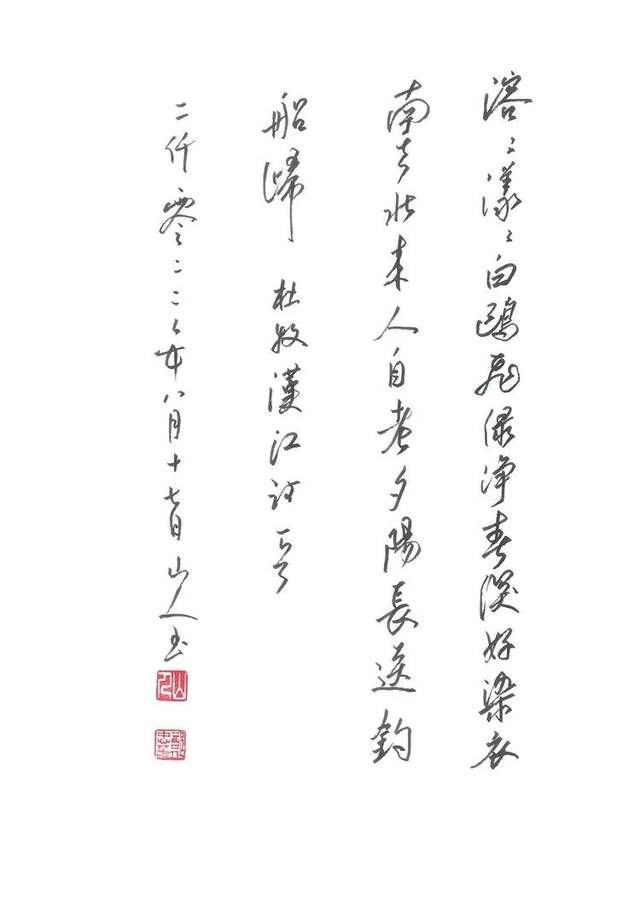 溶〻漾〻白鷗飛绿净春深好染衣
南去北来人自老夕陽長送釣
船歸 杜牧漢江诗一首
二仟零二二年八月十七日山人书
山人